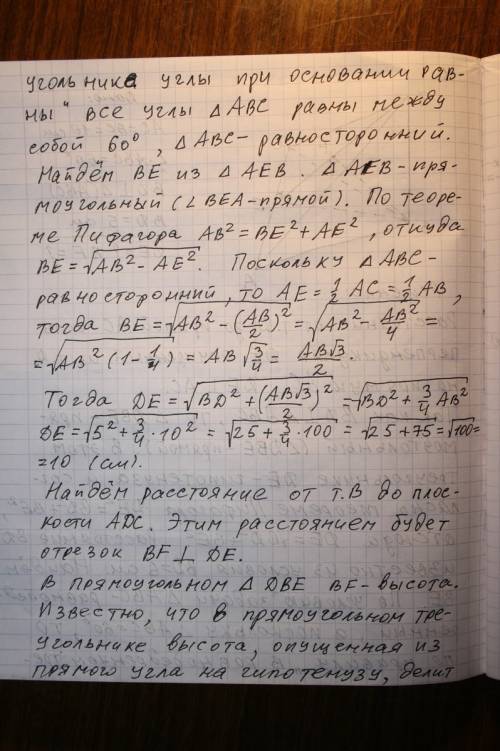 угольника углы при основании рав-
ны" все углы △ABC равны между
собой 60°, △ABC- равносторонний.
Найдём BE из △AEB. △AEB-пря-
моугольный (∠BEA-прямой). По теоре-
ме Пифагора AB²=BE²+AE², откуда
BE=√(AB²-AE²). Поскольку △ABC-
равносторонний, то AE=1/2 AC=1/2 AB,
тогда BE=√(AB²-(AB/2)²)=√(AB²-AB²/4)=
=√(AB²(1-1/4))=AB√(3/4)=AB√3/2.
Тогда DE=√(BD²+(AB√3/2)²)=√(BD²+3/4 AB²)
DE=√(5²+3/4·10²)=√(25+3/4·100)=√(25+75)=√100=
=10 (см).
Найдём расстояние от т.B до плос-
кости ADC. Этим расстоянием будет
отрезок BF⊥DE.
В прямоугольном △DBE BF-высота.
Известно, что в прямоугольном тре-
угольнике высота, опущенная из
прямого угла на гипотенузу, делит